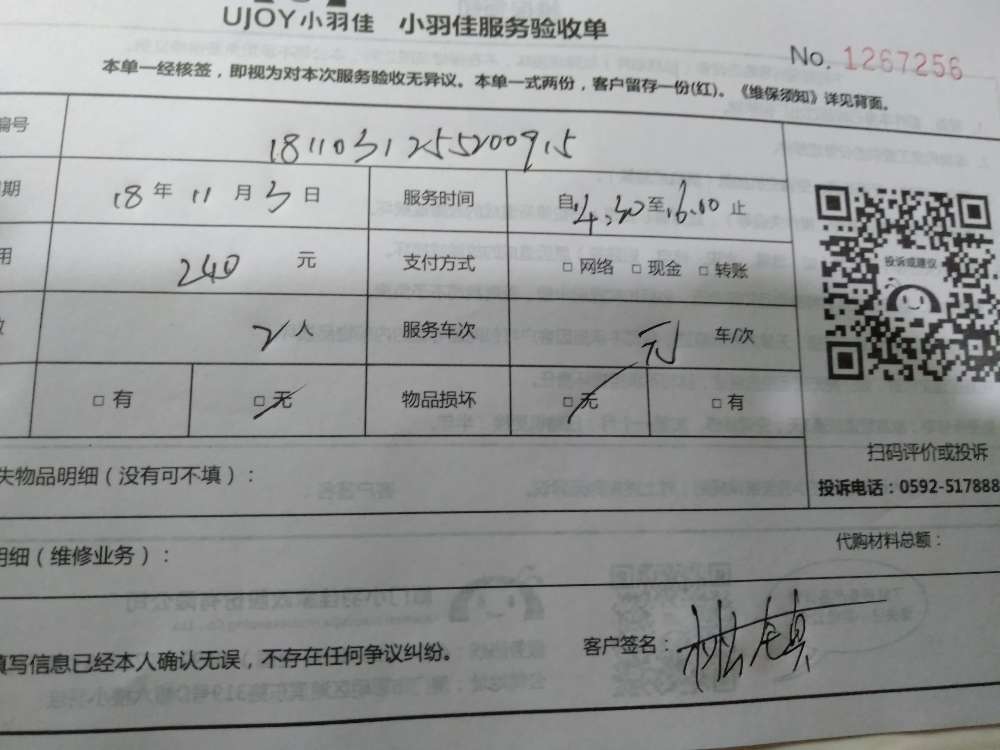 UJOY小羽佳 小羽佳服务验收单
No. 1267256
本单一经核签，即视为对本次服务验收无异议。本单一式两份，客户留存一份(红)。《维保须知》详见背面。
编号 181103125520091​5
期 18 年 11 月 3 日 服务时间 自14:30至16:00止
用 240 元 支付方式 □ 网络 □ 现金 □ 转账
数 2 人 服务车次 元 车/次
□ 有 □ 无 物品损坏 □ 无 □ 有
投诉或建议
扫码评价或投诉
投诉电话：0592-517888
失物品明细（没有可不填）：
明细（维修业务）： 代购材料总额：
填写信息已经本人确认无误，不存在任何争议纠纷。 客户签名：